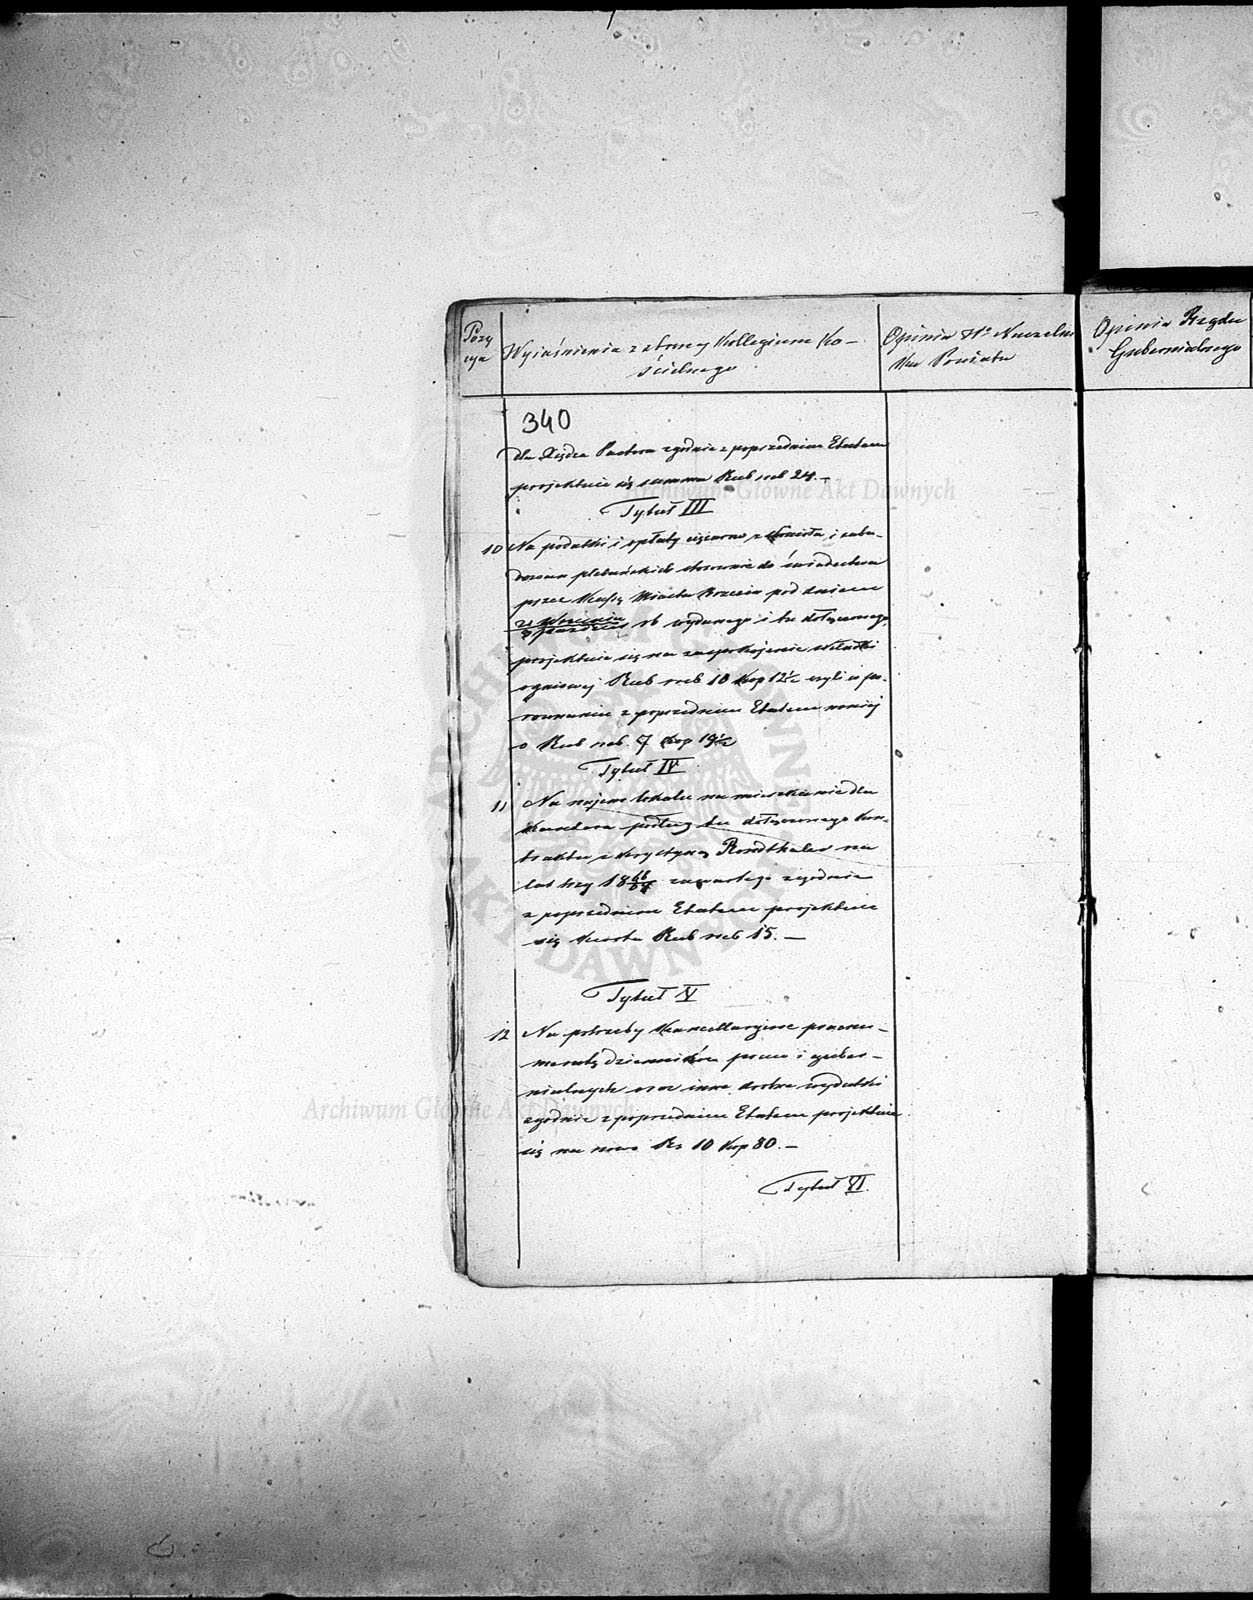 Pozy
cya
Wyjaśnienia z strony Kollegium Ko-
ścielnego
Opinia Wo Naczelni
ka Powiatu
Opinia Rządu
Gubernialnego
340
dla Księdza Pastora zgodnie z poprzednim Etatem
projektuie się summa Rub sreb 24.-
Tytuł III
10 Na podatki i opłaty ciężarne z Kościoła i zabu-
dowań plebańskich stosownie do świadectwa
przez Kassę Miasta Brzezin pod dniem
rb wydanego i tu dołączonego,
projektuie się na zaspokojenie składki
ogniowej Rub sreb 10 kop 12½ czyli w po-
rownaniu z poprzednim Etatem mniej
o Rub sreb. 7 kop 19½
Tytuł IV
11 Na najem lokalu na mieszkanie dla
Kantora podług tu dołączonego kon-
traktu z Krystyną Rondthaler na
lat trzy 18 zawartego zgodnie
z poprzednim Etatem projektuie
się kwota Rub sreb 15.-
Tytuł V
12 Na potrzeby Kancellaryine prenume-
meratę dzienników praw i guber-
nialnych oraz inne drobne wydatki
zgodnie z poprzednim Etatem projektuie
się na nowo Rs 10 kop 80.-
Tytuł VI.
Archiwum Główne Akt Dawnych
Archiwum Główne Akt Dawnych